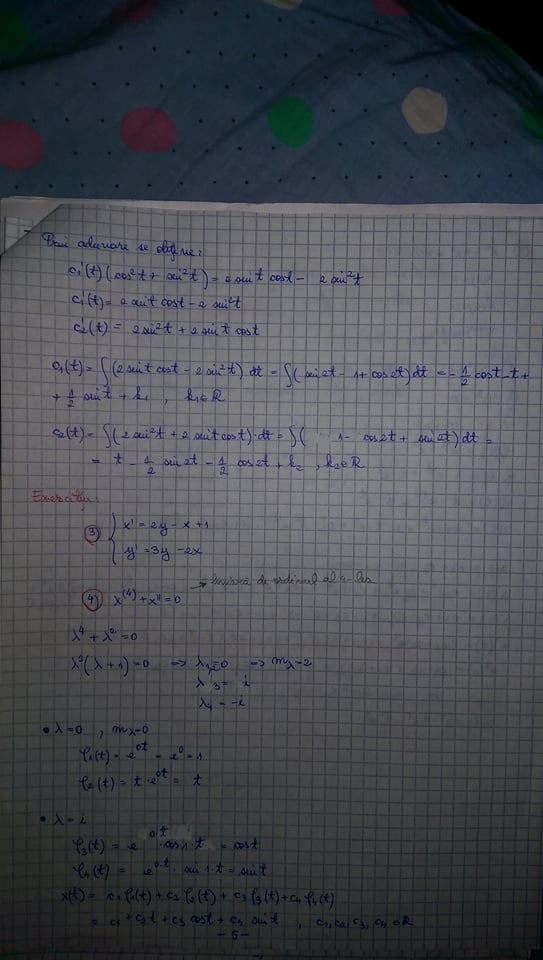 Prin adunare se obține:
c₁'(t)(cos²t + sin²t) = 2 sint cost - 2 sin²t
c₁'(t) = 2 sint cost - 2 sin²t
c₂'(t) = 2 sin²t + 2 sint cost
c₁(t) = ∫(2 sint cost - 2 sin²t) dt = ∫(sin2t - 1 + cos2t) dt = -1/2 cost - t +
+ 1/2 sin t + k₁ , k₁∈R
c₂(t) = ∫(2 sin²t + 2 sint cost)·dt = ∫( 1 - cos2t + sin2t) dt =
= t - 1/2 sin2t - 1/2 cos2t + k₂ , k₂∈R
Exercițiu:
3) { x' = 2y - x + 1
y' = 3y - 2x
4) x⁽⁴⁾ + x'' = 0 → de ordinul al 4-lea
λ⁴ + λ² = 0
λ²(λ + 1) = 0 => λ₁,₂ = 0 => m_λ = 2
λ₃ = i
λ₄ = -i
• λ = 0 , m_λ = 0
φ₁(t) = e^0t = e⁰ = 1
φ₂(t) = t·e^0t = t
• λ = i
φ₃(t) = e^0·t · cos 1·t = cost
φ₄(t) = e^0·t · sin 1·t = sint
x(t) = c₁φ₁(t) + c₂φ₂(t) + c₃φ₃(t) + c₄φ₄(t)
= c₁ + c₂t + c₃ cost + c₄ sint , c₁, c₂, c₃, c₄ ∈ R
- 5 -